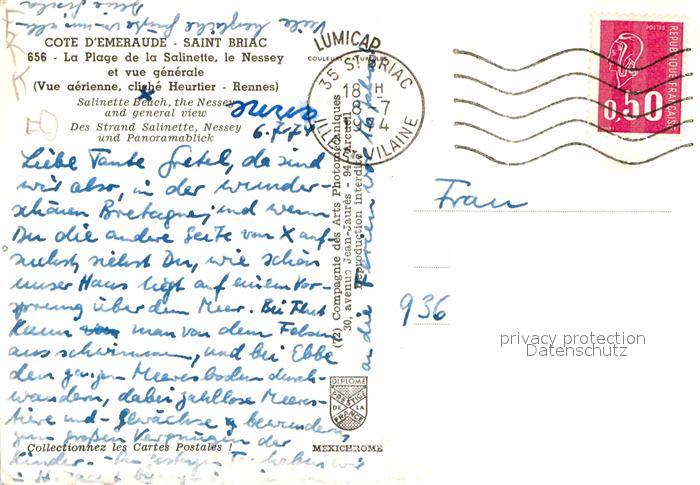 COTE D'EMERAUDE - SAINT BRIAC
656 - La Plage de la Salinette, le Nessey
et vue générale
(Vue aérienne, cliché Heurtier - Rennes)
Salinette Beach, the Nessey
and general view
Des Strand Salinette, Nessey
und Panoramablick
6.7.74
Liebe Tante Gretel, da sind
wir also, in der wunder-
schönen Bretagne, und wenn
Du die andere Seite von X auf-
suchst, siehst Du, wie schön
unser Haus liegt auf einem Vor-
sprung über dem Meer. Bei Flut
kann man von dem Felsen
aus schwimmen, und bei Ebbe
den ganzen Meeresboden durch-
wandern, dabei zahllose Meeres-
tiere und -Gewächse bewundern,
zum großen Vergnügen der
Kinder.
Collectionnez les Cartes Postales !
an die Ferien
LUMICAP
COULEURS NATURELLES
(72) Compagnie des Arts Photomécaniques
30, avenue Jean-Jaurès - 94-Arcueil
Reproduction interdite
DIPLOME
PRESTIGE
DE LA
FRANCE
MEXICHROME
35 ST BRIAC
18 H
8 - 7
1974
ILLE & VILAINE
REPUBLIQUE FRANÇAISE
POSTES
0,50
Frau
936
privacy protection
Datenschutz